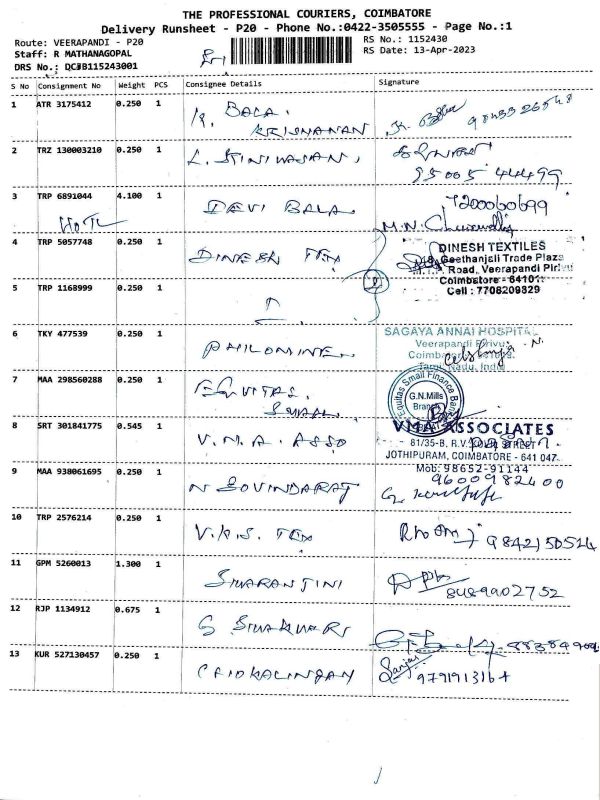 THE PROFESSIONAL COURIERS, COIMBATORE
Delivery Runsheet - P20 - Phone No.:0422-3505555 - Page No.:1
Route: VEERAPANDI - P20 RS No.: 1152430
Staff: R MATHANAGOPAL RS Date: 13-Apr-2023
DRS No.: DCJB115243001
S No Consignment No Weight PCS Consignee Details Signature
1 ATR 3175412 0.250 1 K. BALA.
KRISHNANAN
2 TRZ 130003210 0.250 1 L. SRINIVASAN,
95005 44499
3 TRP 6891044 4.100 1 DEVI BALA 7200060699
4 TRP 5057748 0.250 1 DINESH TEX DINESH TEXTILES
Geethanjali Trade Plaza
Road, Veerapandi Pirivu
Coimbatore - 64101
Cell : 7708209829
5 TRP 1168999 0.250 1
6 TKY 477539 0.250 1 PHILOMINE SAGAYA ANNAI HOSPITAL
Veerapandi Pirivu
Tamil Nadu, India
7 MAA 298560288 0.250 1 EQVITAS. Equitas Small Finance Bank
G.N.Mills
Branch
8 SRT 301841775 0.545 1 V.M.A. ASSO VMA ASSOCIATES
81/35-B, R.V. STREET
JOTHIPURAM, COIMBATORE - 641 047.
Mob: 98652-91144
9 MAA 938061695 0.250 1 N GOVINDARAJ 9600982400
10 TRP 2576214 0.250 1 V.K.S. TEX 9842150524
11 GPM 5260013 1.300 1 SIVARANJINI 8489902752
12 RJP 1134912 0.675 1 G SIVAKUMAR
13 KUR 527130457 0.250 1 Sanjai